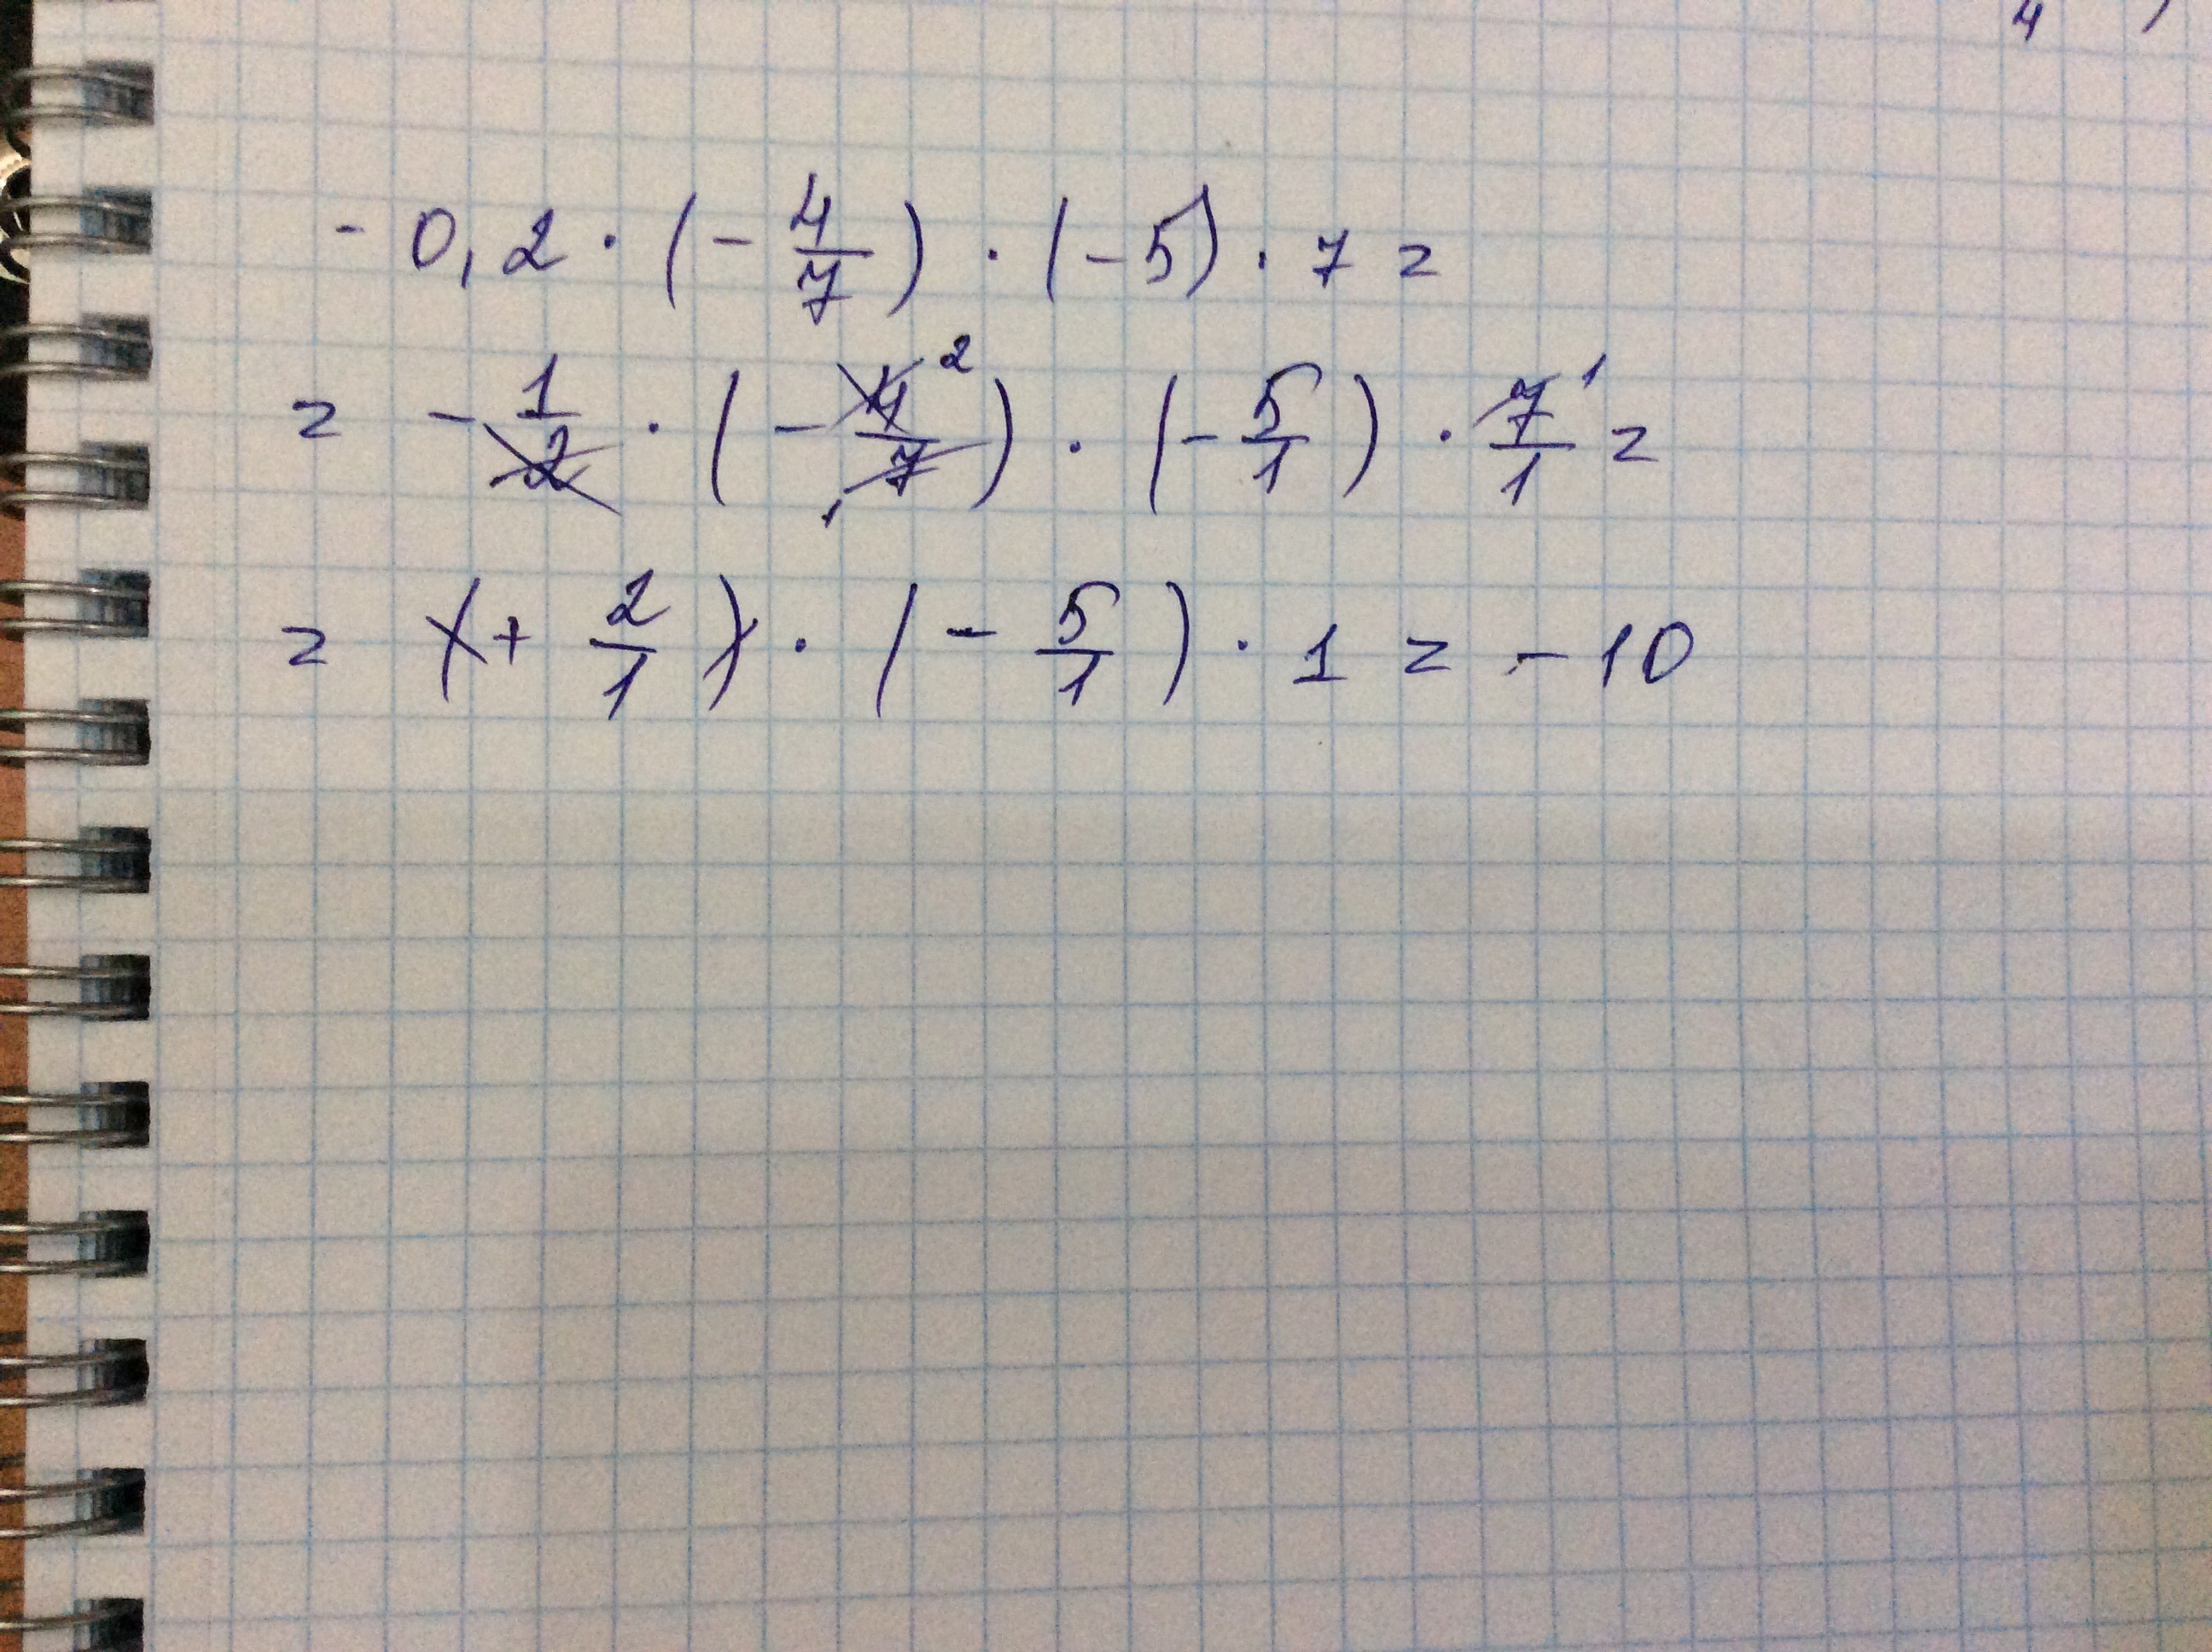 4 )
- 0,2 · (- 4/7) · (-5) · 7 =
= - 1/2 · (- 4/7) · (- 5/1) · 7/1 = 2 1 1
= (+ 2/1) · (- 5/1) · 1 = -10